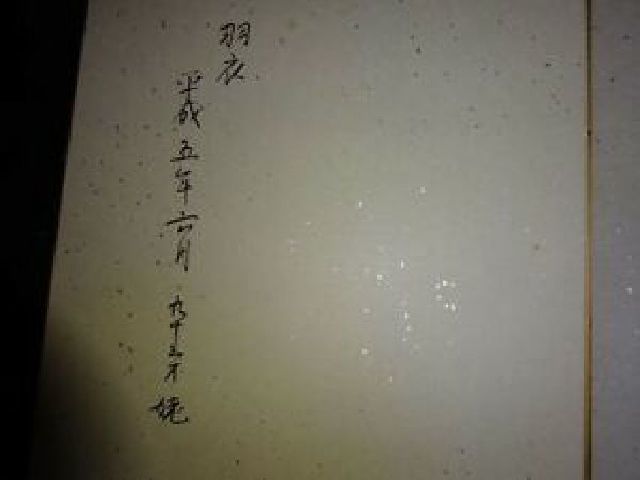 羽衣
平成五年六月 九十三才